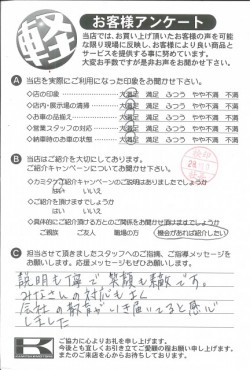 軽
お客様アンケート
当店では、お買い上げ頂いたお客様の声を可能
な限り現場に反映し、お客様により良い商品と
サービスを提供する事に努めています。
大変お手数ですが是非お声をお聞かせ下さい。
A 当店を実際にご利用になった印象をお聞かせ下さい。
◇店の印象 大満足 満足 ふつう やや不満 不満
◇店内・展示場の清掃 大満足 満足 ふつう やや不満 不満
◇お車の品揃え 大満足 満足 ふつう やや不満 不満
◇営業スタッフの対応 大満足 満足 ふつう やや不満 不満
◇納車時のお車の状態 大満足 満足 ふつう やや不満 不満
B 当店はご紹介を大切にしております。
ご紹介キャンペーンについてお聞かせ下さい。
◇カミタケご紹介キャンペーンのご説明はありましたでしょうか
はい いいえ
◇ご紹介を頂けますでしょうか
はい いいえ
◇具体的にご紹介頂ける方とのご関係をお聞かせ頂けますでしょうか
ご親族 ご友人 職場の方 機会があれば紹介したい
C 担当させて頂きましたスタッフへのご指摘、ご指導メッセージを
お願いします。応援メッセージもぜひお願いします。
説明も丁寧で笑顔も素敵です。
みなさんの対応もよく
会社の教育がいき届いてると感心
しました
K
ご協力に心よりお礼を申し上げます。
今後とも宜しくお引き立てご愛顧の程お願い申し上げます。
またのご来店を心からお待ちしております。